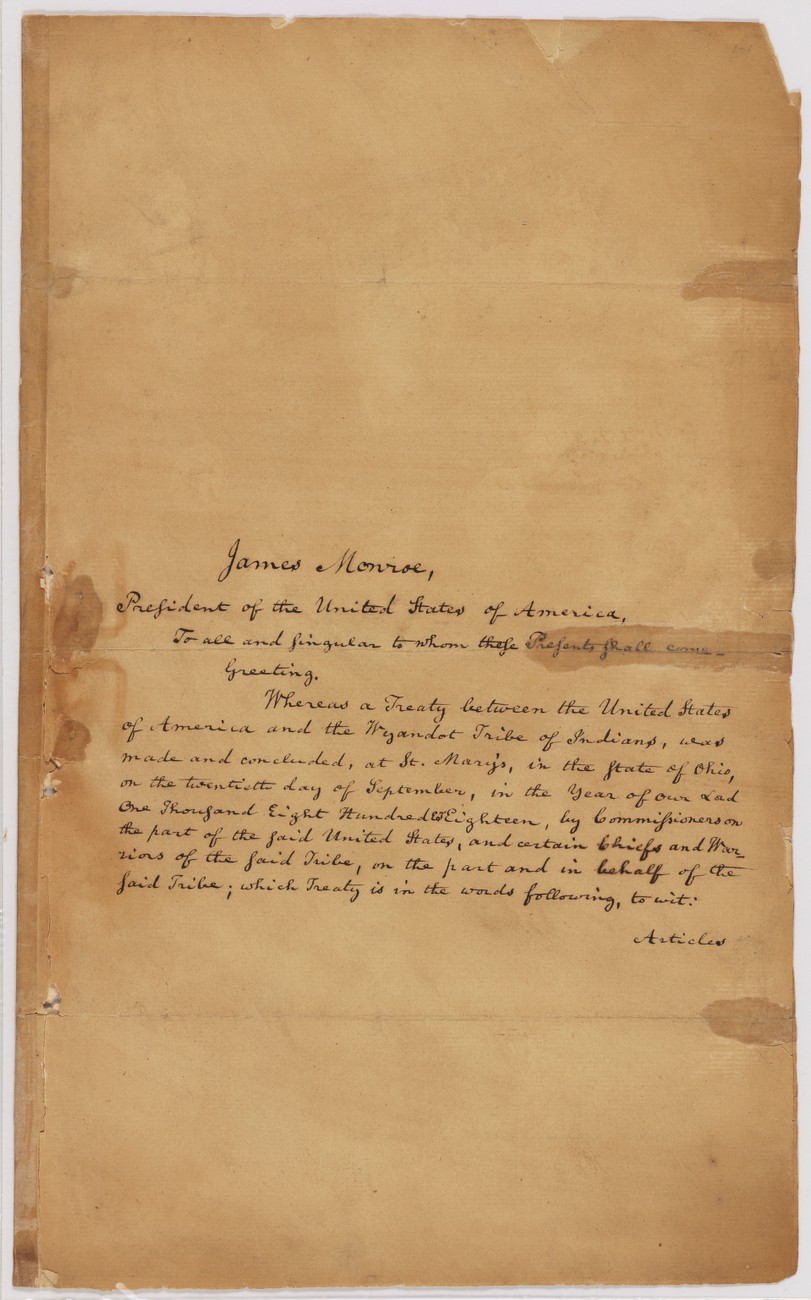 James Monroe,
President of the United States of America,
To all and singular to whom these Presents shall come
Greeting.
Whereas a Treaty between the United States
of America and the Wyandot Tribe of Indians, was
made and concluded, at St. Mary's, in the State of Ohio,
on the twentieth day of September, in the Year of our Lod
One Thousand Eight Hundred & Eighteen, by Commissioners on
the part of the said United States, and certain Chiefs and War-
riors of the said Tribe, on the part and in behalf of the
said Tribe; which Treaty is in the words following, to wit:
Articles